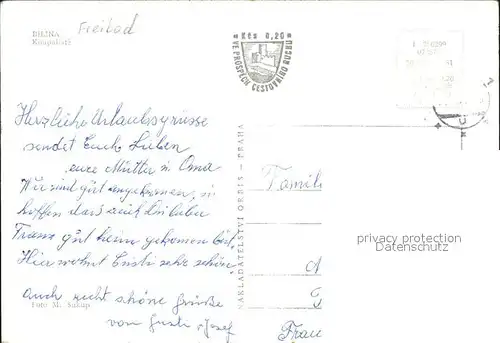 Freibad
BÍLINA
Koupaliště
Kčs 0,20
VE PROSPĚCH CESTOVNÍHO RUCHU
Herzliche Urlaubsgrüsse
sendet Euch Lieben
eure Mutter u. Oma
Wir sind gut angekommen, u.
hoffen das auch Du lieber
Franz gut heim gekomen bist,
Hier wohnt Gusti sehr schön,
Auch recht schöne Grüße
von Gusti Josef
Foto M. Sukup
NAKLADATELSTVÍ ORBIS - PRAHA
Famili
Frau
privacy protection
Datenschutz